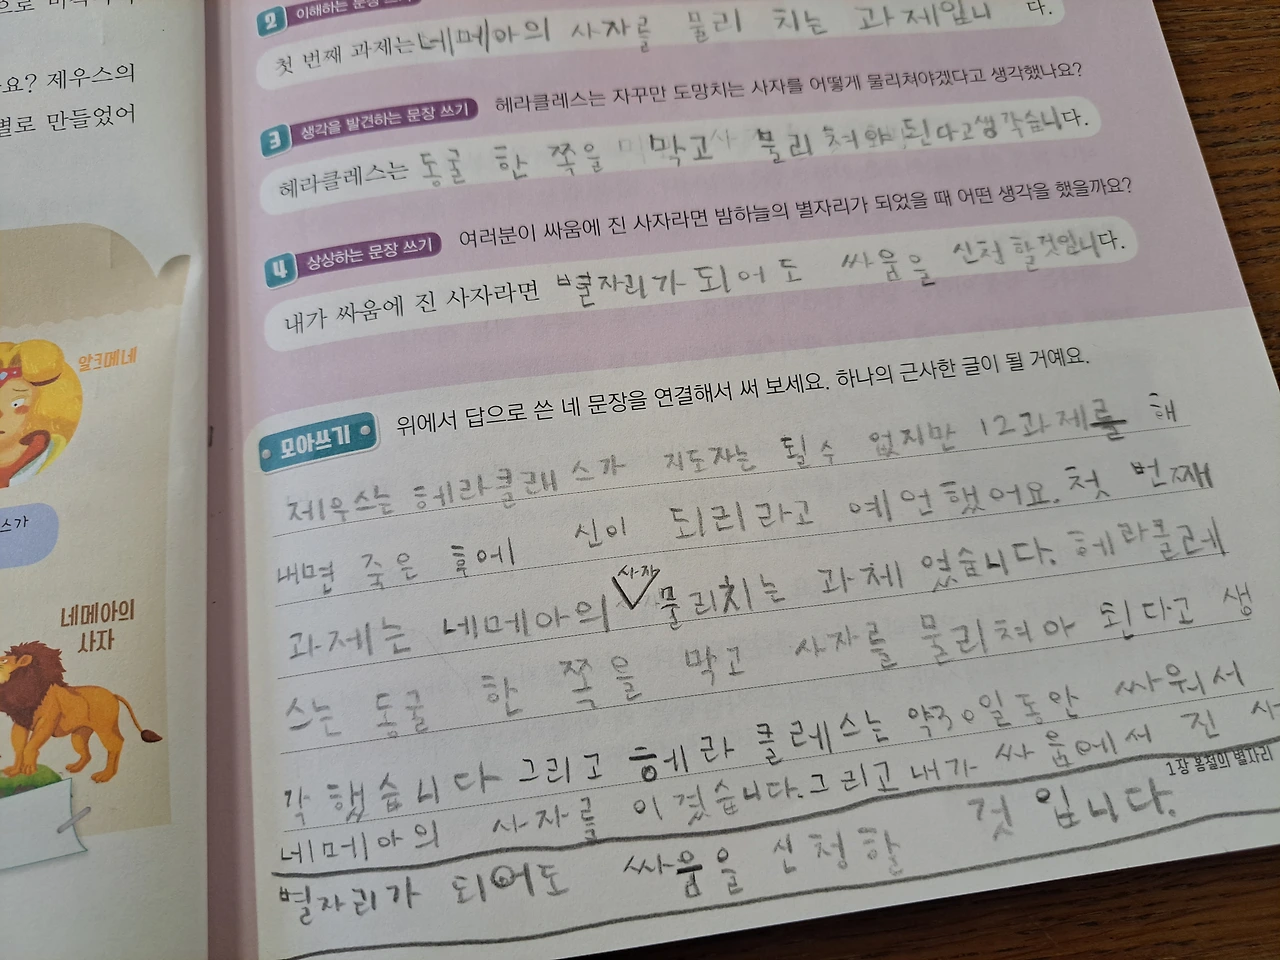 요? 제우스의
별로 만들었어
알크메네
스가
네메아의
사자
2 이해하는 문장 쓰기
첫 번째 과제는 네메아의 사자를 물리 치는 과제입니 다.
3 생각을 발견하는 문장 쓰기 헤라클레스는 자꾸만 도망치는 사자를 어떻게 물리쳐야겠다고 생각했나요?
헤라클레스는 동굴 한 쪽을 막고 물리쳐야 된다고생각습니다.
4 상상하는 문장 쓰기 여러분이 싸움에 진 사자라면 밤하늘의 별자리가 되었을 때 어떤 생각을 했을까요?
내가 싸움에 진 사자라면 별자리가 되어도 싸움을 신청할것입니다.
모아쓰기 위에서 답으로 쓴 네 문장을 연결해서 써 보세요. 하나의 근사한 글이 될 거예요.
제우스는 헤라클래스가 지도자는 될수 없지만 12과제를 해
내면 죽은 후에 신이 되리라고 예언했어요. 첫 번째
과제는 네메아의 사자 물리치는 과제 였습니다. 헤라클레
스는 동굴 한 쪽을 막고 사자를 물리쳐야 된다고 생
각했습니다 그리고 헤라클레스는 약30일동안 싸워서
네메아의 사자를 이겼습니다. 그리고 내가 싸움에서 진 사
1장 봄철의 별자리
별자리가 되어도 싸움을 신청할 것입니다.